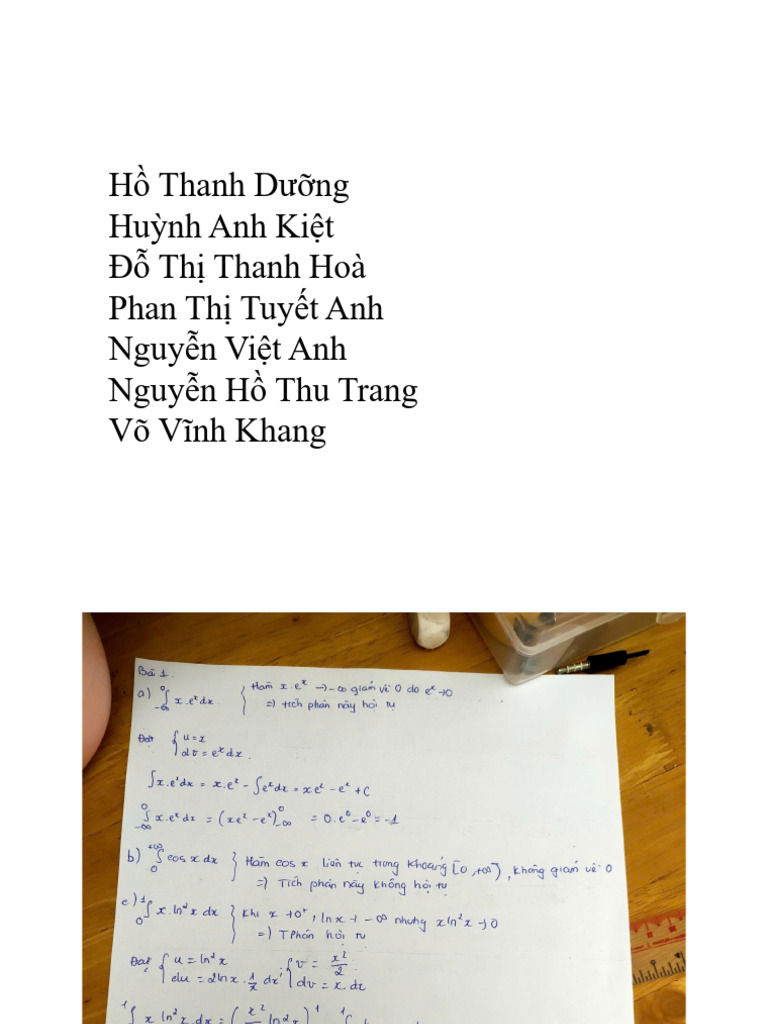 Hồ Thanh Dưỡng
Huỳnh Anh Kiệt
Đỗ Thị Thanh Hoà
Phan Thị Tuyết Anh
Nguyễn Việt Anh
Nguyễn Hồ Thu Trang
Võ Vĩnh Khang
Bài 1.
a) ∫_{-∞}^{0} x.e^x dx { Hàm x.e^x → -∞ giảm về 0 do e^x → 0
=) tích phân này hội tụ
Đặt { u = x
dv = e^x dx.
∫x.e^x dx = x.e^x - ∫e^x dx = xe^x - e^x + C
∫_{-∞}^{0} x.e^x dx = (xe^x - e^x)_{-∞}^{0} = 0.e^0 - e^0 = -1
b) ∫_{0}^{+∞} cos x dx } Hàm cos x liên tục trong khoảng [0, +∞), không giảm về 0
=) Tích phân này không hội tụ
c) ∫_{0}^{1} x.ln²x dx } Khi x → 0⁺, ln x → -∞ nhưng x ln²x → 0
=) TPhân hội tụ
Đặt { u = ln²x { v = x²/2
du = 2lnx . 1/x dx { dv = x.dx
∫ x ln²x.dx = (